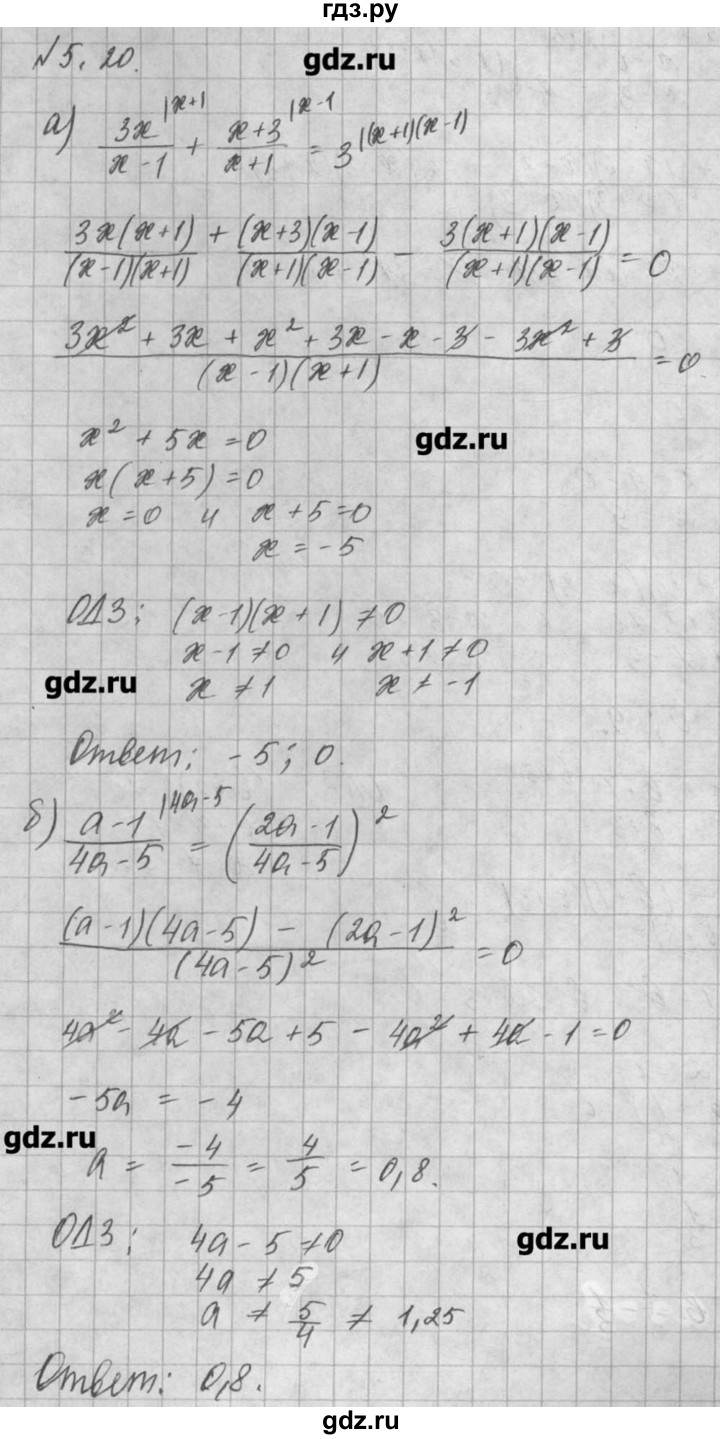 гдз.ру
№5.20.
gdz.ru
а) 3x/(x-1) |x+1 + (x+3)/(x+1) |x-1 = 3 |(x+1)(x-1)
3x(x+1)/((x-1)(x+1)) + (x+3)(x-1)/((x+1)(x-1)) - 3(x+1)(x-1)/((x+1)(x-1)) = 0
(3x² + 3x + x² + 3x - x - 3 - 3x² + 3)/((x-1)(x+1)) = 0.
x² + 5x = 0
gdz.ru
x(x+5) = 0
x = 0 и x + 5 = 0
x = -5
ОДЗ: (x-1)(x+1) ≠ 0
x-1 ≠ 0 и x+1 ≠ 0
gdz.ru
x ≠ 1 x ≠ -1
Ответ: -5; 0.
б) (a-1)/(4a-5) |4a-5 = ((2a-1)/(4a-5))²
((a-1)(4a-5) - (2a-1)²)/(4a-5)² = 0
4a² - 4a - 5a + 5 - 4a² + 4a - 1 = 0
-5a = -4
gdz.ru
a = -4/-5 = 4/5 = 0,8.
ОДЗ: 4a - 5 ≠ 0
gdz.ru
4a ≠ 5
a ≠ 5/4 ≠ 1,25
Ответ: 0,8.
gdz.ru